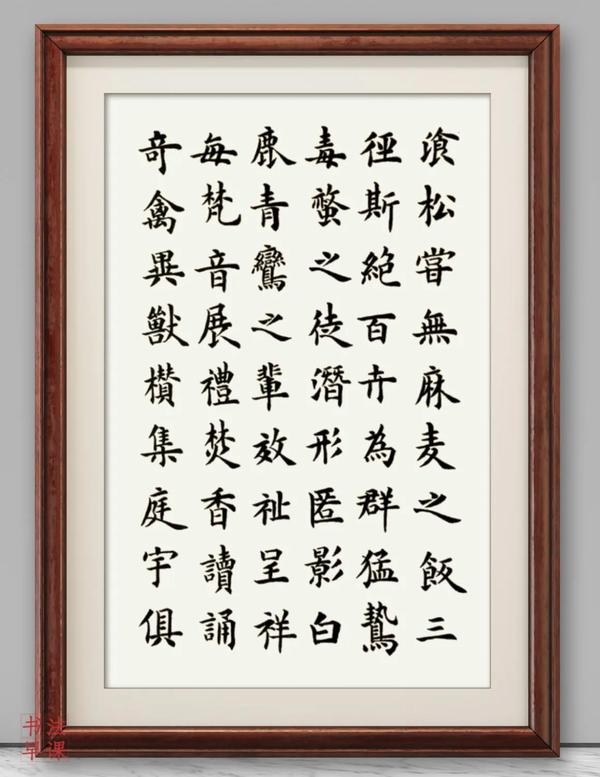 湌松嘗無麻麦之飯三
徑斯絕百卉為群猛鷙
毒螫之徒潛形匿影白
鹿青鸞之輩效祉呈祥
每梵音展禮焚香讀誦
奇禽異獸欑集庭宇俱
书法
早课